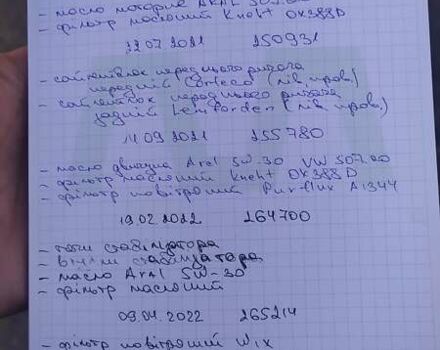 - масло моторне ARAL 507.00
- фільтр масляний Kneht OX388D
22.07.2021 250931
- сайлентблок переднього ричага
передній Corteco (лів. прав.)
- сайлентблок переднього ричага
задній Lemforder (лів. прав.)
11.09.2021 255780
- масло двигуна Aral 5W-30 VW 507.00
- фільтр масляний Kneht OX388D
- фільтр повітряний Purflux A1344
19.02.2022 264700
- тяги стабілізатора
- втулки стабілізатора
- масло Aral 5W-30
- фільтр масляний
09.04.2022 265214
- фільтр повітряний Wix